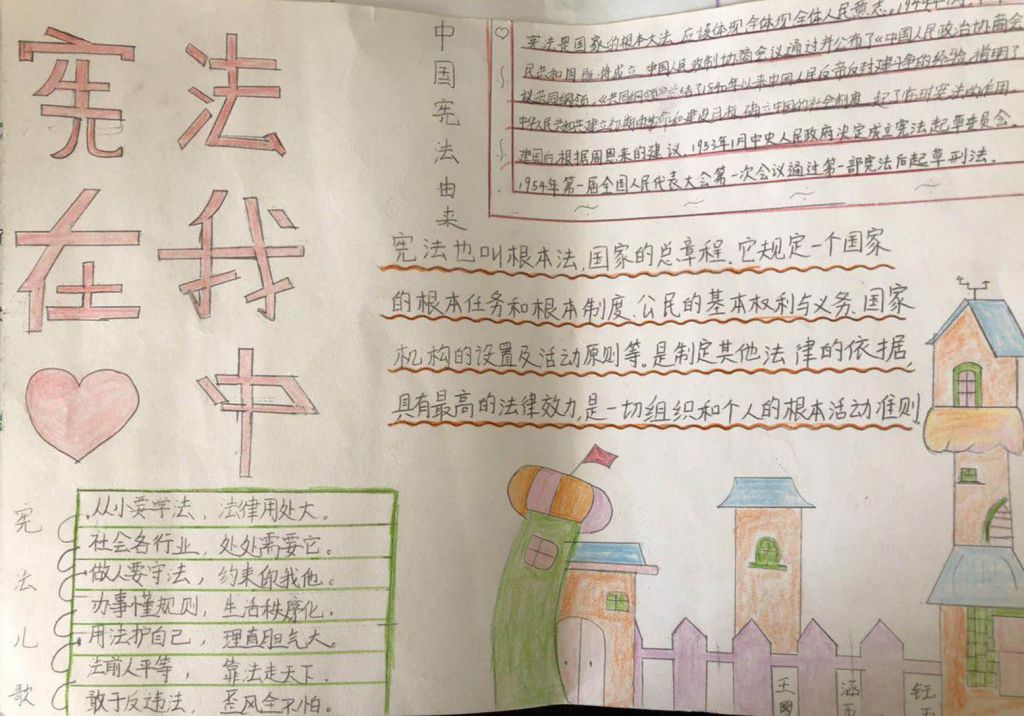 宪法
在我
中
中国宪法由来
宪法是国家的根本大法,应该体现全体现全体人民意志。1949年
民共和国即将成立,中国人民政制协商会议通过并公布了《中国人民政治协商会
议共同纲领》,《共同纲领》总结了1840年以来中国人民反帝反封建斗争的经验,
中华人民共和共建立初期的革命和建设目标,确立中国的社会制度,起了临时宪法的作用
建国后,根据周恩来的建议,1953年1月中央人民政府决定成立宪法起草委员会。
1954年第一届全国人民代表大会第一次会议通过第一部宪法后起草刑法。
宪法也叫根本法,国家的总章程、它规定一个国家
的根本任务和根本制度、公民的基本权利与义务、国家
机构的设置及活动原则等。是制定其他法律的依据,
具有最高的法律效力,是一切组织和个人的根本活动准则
宪法儿歌
从小要学法,法律用处大。
社会各行业,处处需要它。
做人要守法,约束你我他。
办事懂规则,生活秩序化。
用法护自己,理直胆气大。
法前人平等,靠法走天下。
敢于反违法,歪风全不怕。
王
涵
钰